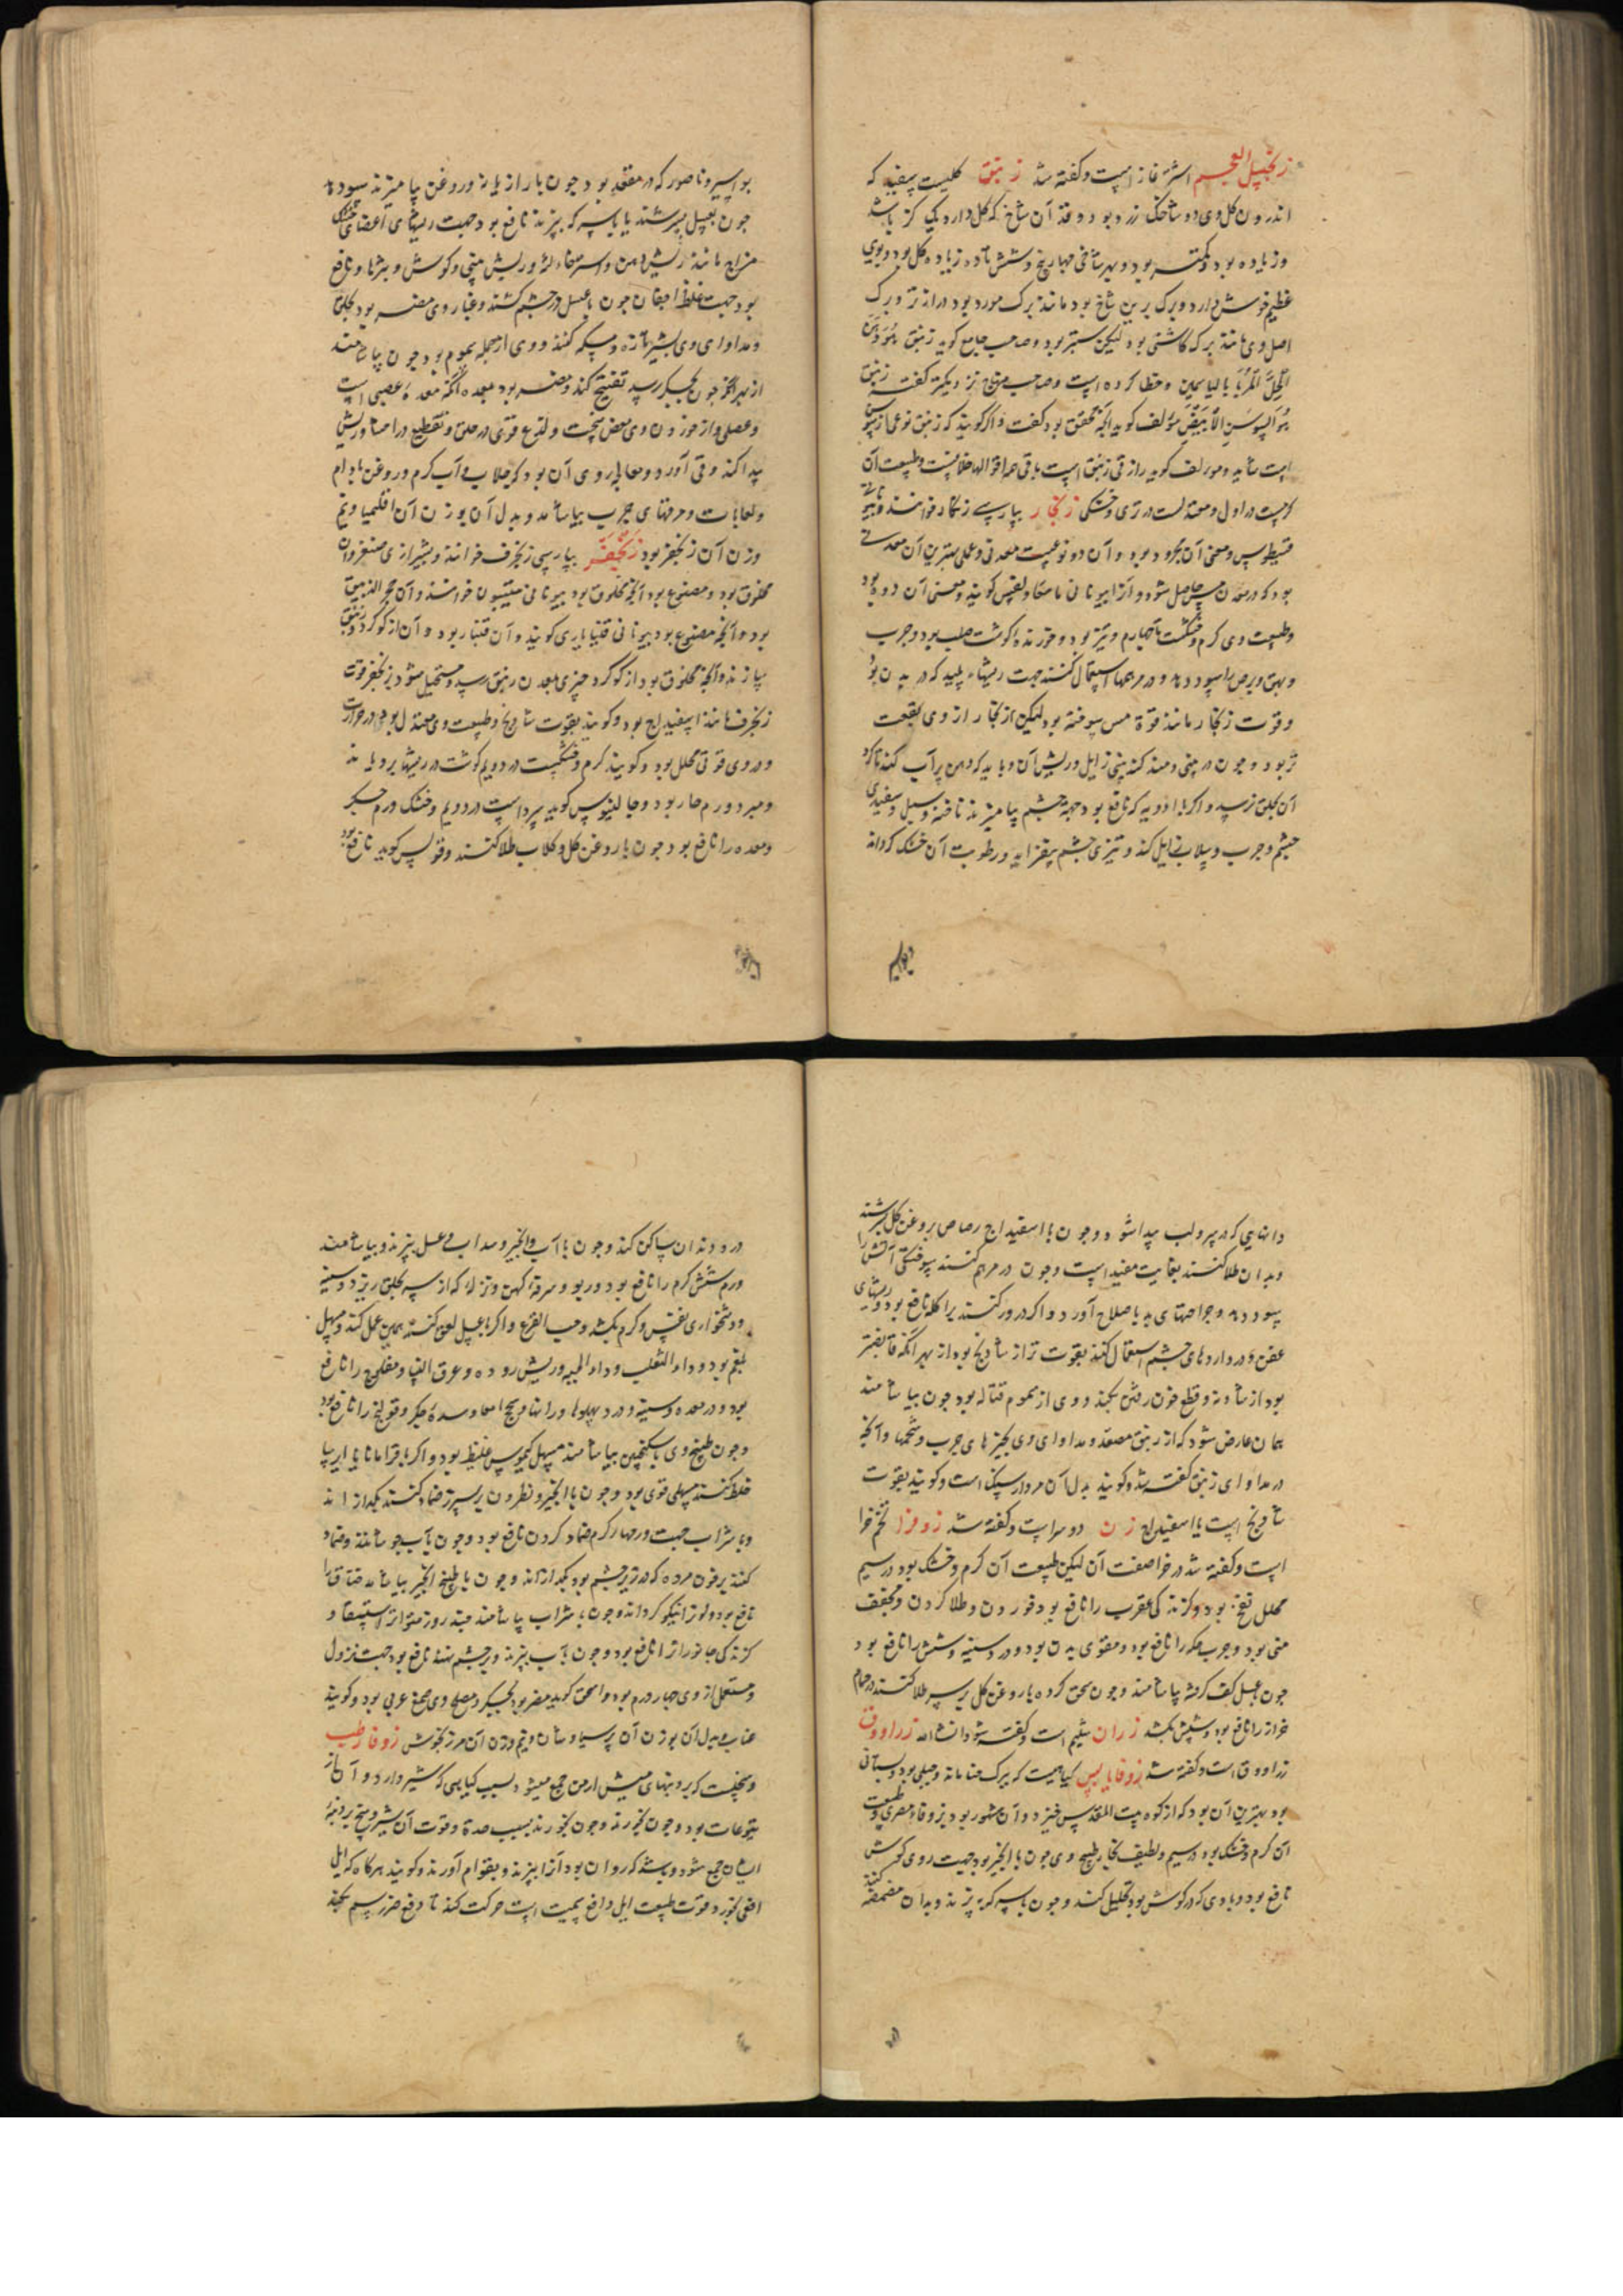 زنجبیل العجم اشترغاز است و گفته شد زنبق گلیست سفید که
اندرون گل وی دو شاخک زرد بود و قد آن شاخ که گل دارد یک گز باشد
وزیاده بود و کمتر بود و بهر شاخی چهار پنج و شش تا ده زیاده گل بود و بوی
عظیم خوش دارد و برگ برین شاخ بود مانند برگ مورد بود درازتر و برگ
اصل وی مانند برگ کاشنی بود لیکن ستبرتر بود و صاحب جامع گوید زنبق هو دهن
الحل المربا بالیاسمین و خطا کرده است و صاحب منهاج نیز دیگر گفته زنبق
هو السوسن الابیض مولف گوید آنچه محقق بود گفت و اگر گویند که زنبق نوعی از سوسن
است شاید و مولف گوید رازقی زنبق است باقی همه اقوال خلافست و طبیعت آن
گرمست در اول و معتدلست در تری و خشکی زنجار بپارسی زنگار خوانند و بیونانی
قسیطوس و معنی آن مجرود بود و آن دو نوعست معدنی و عملی بهترین آن معدنی
بود که در معدن مس حاصل شود و آنرا بیونانی گویند و معنی آن دوده بود
و طبیعت وی گرم و خشکست تا چهارم و تیز بود و خورنده گوشت صلب بود و جرب
و بهق و برص را سود دهد و در مرهمها استعمال کنند جهت ریشهاء پلید که در بدن بود
و قوت زنجار مانند قوة مس سوخته بود لیکن زنجار از وی بقوت
تر بود و چون در بینی دمند گند بینی زایل و ریش آن و باید که دهن پر آب کنند تا گرد
آن بحلق نرسد و اگر با ادویه که نافع بود جهة چشم بیامیزند ناخنه و سبل و سفیدی
چشم و جرب و سلاق زایل کند و تیزی چشم بیفزاید و رطوبت آن خشک گرداند
بواسیر و ناصور که در مقعد بود چون با رازیانه و روغن بیامیزند سود دهد
چون بعسل بسرشند یا با سرکه بپزند نافع بود جهت ریشهای اعضای خشک
مزاج مانند ریش دهن و استرخاء لثه و ریش بینی و گوش و بثرها و نافع
بود جهت غلظ اجفان چون با عسل در چشم کشند و غبار وی مضر بود بحلق
و مداوای وی بشیر تازه و مسکه کنند و وی از جمله سموم بود چون بیاشامند
از بهر آنکه چون بجگر رسد تفتیح کند و مضر بود بمعده زانکه معده عصبی است
و عضلی و از خوردن وی مغص سخت و لذع قوی در حلق و تقطیع در امعا و ریش
پیدا کند و قی آورد و معالجه وی آن بود که بجلاب و آب گرم و روغن بادام
و لعابات و مرقهای چرب بیاشامند و بدل آن بوزن آن اقلیمیا و نیم
وزن آن زنجفر بود زنجفر بپارسی زنجرف خوانند و بشیرازی صنغروان
مخلوق بود و مصنوع بود آنچه مخلوق بود بیونانی مینیون خوانند و آن حجر الزیبق
بود و آنچه مصنوع بود بیونانی قنباری گویند و آن قنبار بود و آن از گوگرد و زیبق
سازند و آنچه مخلوق بود از گوگرد چیزی بمعدن زیبق رسد و مستحیل شود بزنجفر قوت
زنجرف مانند اسفیداج بود و گویند بقوت شادنج و طبیعت وی معتدل بود در حرارت
و در وی قوتی محلل بود و گویند گرم و خشکست در دویم گوشت در ریشها برویاند
و مبرد ورم حار بود و جالینوس گوید سرد است در دویم و خشک ورم جگر
و معده را نافع بود چون با روغن گل و گلاب طلا کنند و قولس گوید نافع بود
دانهایی که در سر و لب پیدا شود و چون با اسفیداج رصاص بروغن گل بسرشند
و بدان طلا کنند بغایت مفید است و چون در مرهم کنند سوختگی آتش را
سود دهد و جراحتهای بد باصلاح آورد و اگر ذرور کنند برا کله نافع بود و ریشهای
عفن و در داروهای چشم استعمال کنند بقوت تر از شادنج بود از بهر آنکه قابض‌تر
بود از شادنه و قطع خون رفتن بکند و وی از سموم قتاله بود چون بیاشامند
همان عارض شود که از زیبق مصعد و مداوای وی بچیزهای چرب و شحمها و آنچه
در مداوای زیبق گفته شد و گویند بدل آن مردارسنگ است و گویند بقوت
شادنج است یا اسفیداج زن دوسر است و گفته شد زوفرا تخم خرا
است و گفته شد در خرا صفت آن لیکن طبیعت آن گرم و خشک بود در سیم
محلل نفخ بود و گزندگی عقرب را نافع بود خوردن و طلا کردن و مجفف
منی بود و جرب و حکه را نافع بود و مقوی بدن بود و درد سینه و شش را نافع بود
چون بعسل کف گرفته بیاشامند و چون سحق کرده با روغن گل بر سر طلا کنند در حمام
خزاز را نافع بود و شپش بکشد زران شیلم است و گفته شود انشاالله زراووق
زراووق است و گفته شد زوفا یابس گیاهیست که ببرگ حنا ماند و جبلی بود و بستانی
بود بهترین آن بود که از کوه بیت المقدس خیزد و آن مشهور بود بزوفاء مصری و طبیعت
آن گرم و خشک بود در سیم و لطیف بخار طبیخ وی چون با انجیر بود جهت دوی گوش
نافع بود و بادی که در گوش بود تحلیل کند و چون با سرکه بپزند و بدان مضمضه کنند
درد دندان ساکن کند و چون با آب و انجیر و سداب و عسل بپزند و بیاشامند
ورم شش گرم را نافع بود و ربو و سرفه کهن و نزله که از سر بحلق ریزد و سینه
و دشخواری نفس و کرم بکشد و حب القرع و اگر با عسل لعق کنند همین عمل کند و مسهل
بلغم بود و داء الثعلب و داء الحیه و ریش روده و عرق النسا و مفلوج را نافع
بود و درد معده و سینه و درد پهلوها و رانها و سحج امعا و سده جگر و قولنج را نافع بود
و چون طبیخ وی با سکنجبین بیاشامند مسهل کیموس غلیظ بود و اگر با قردمانا یا ایرسا
خلط کنند مسهلی قوی بود و چون با انجیر و نطرون بر سپرز ضماد کنند بگدازاند
و با شراب جهت ورمهاء گرم ضماد کردن نافع بود و چون بآب جوشانند و ضماد
کنند بر خون مرده که در زیر چشم بود بگدازاند و چون با طبیخ انجیر بیاشامند خناق را
نافع بود و لون را نیکو گرداند و چون با شراب بیاشامند چند روز متواتر استسقا و
گزندگی جانوران را نافع بود و چون بآب بپزند و بر چشم نهند نافع بود جهت نزول
و مستعمل از وی چهار درم بود و اسحق گوید مضر بود بجگر و مصلح وی صمغ عربی بود و گویند
عناب و بدل آن بوزن آن پرسیاوشان و نیم وزن آن مرزنجوش زوفا رطب
وسخیست که بر دنبهای میش ارمن جمع میشود بسبب گیاهی که شیر دارد و آن از
یتوعات بود و چون بخورند و چون بخورند بسبب حدة و قوت آن شیر وسخ بر دنبهٔ
ایشان جمع شود و باشد که روان بود آنرا بپزند و بقوام آورند و گویند هرگاه که ایل
افعی بخورد قوت طبیعت ایل دافع سمیت است حرکت کند تا دفع ضرر سم بکند